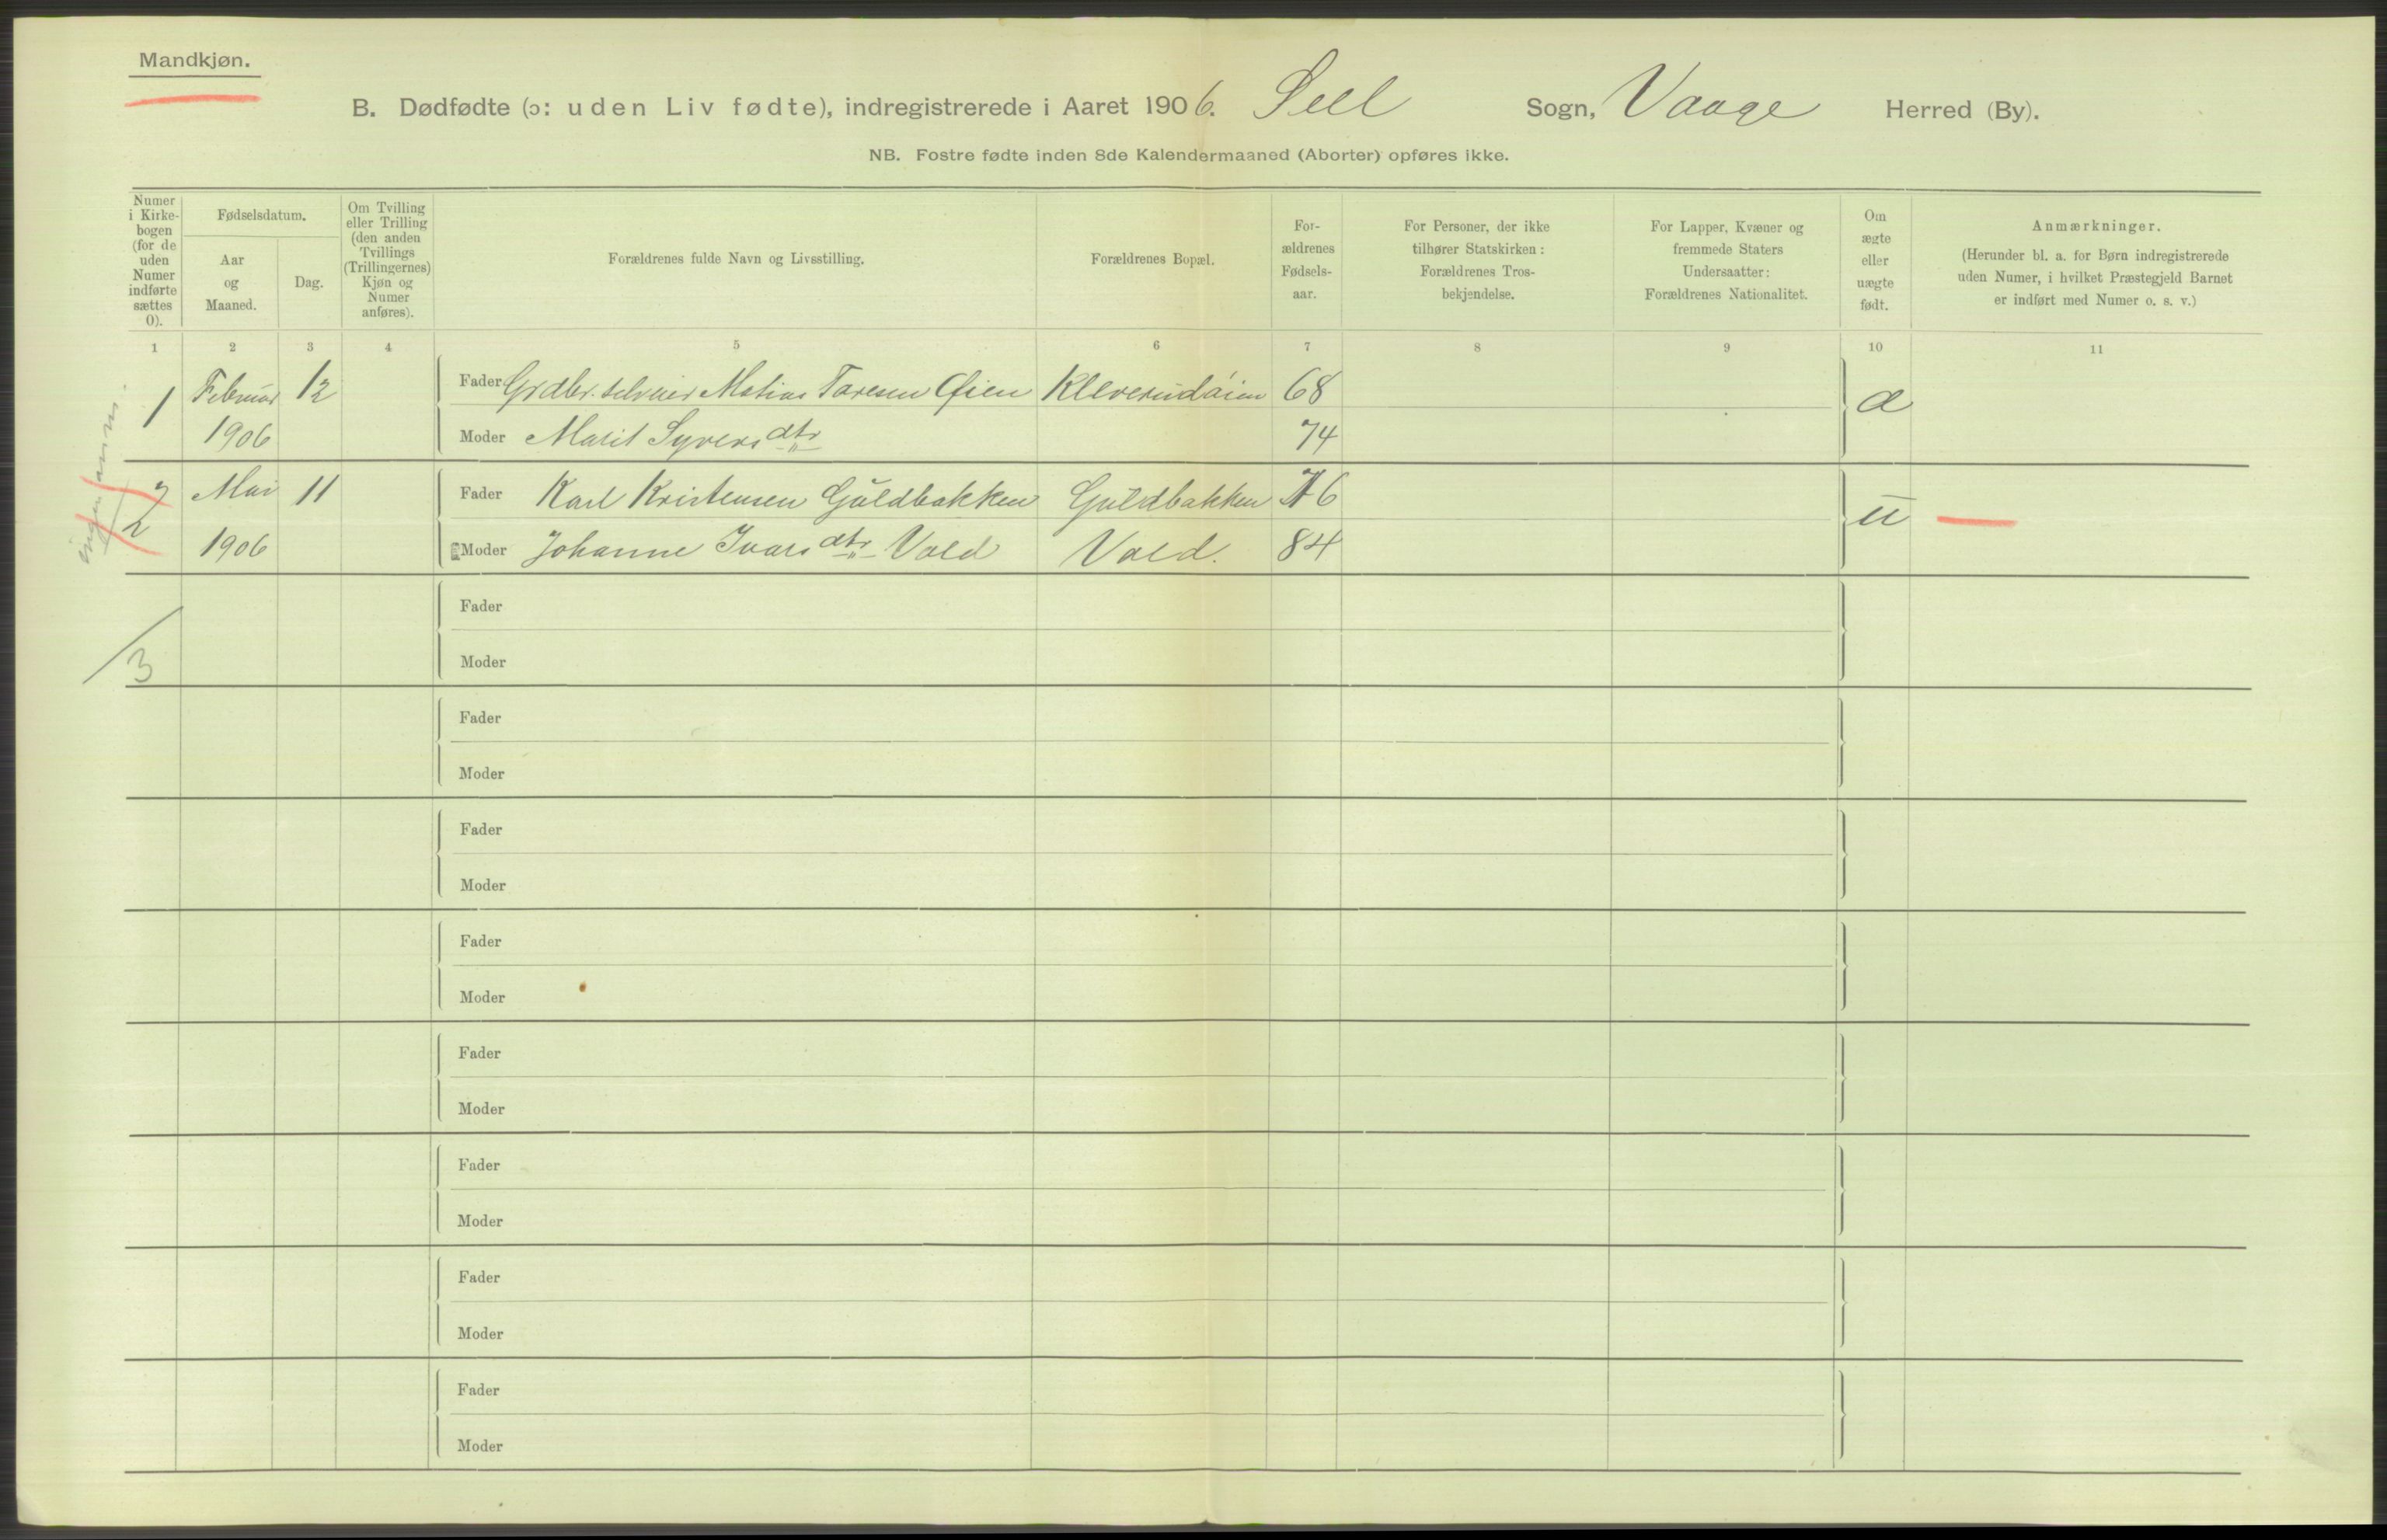 Mandkjøn.
B. Dødfødte (ɔ: uden Liv fødte), indregistrerede i Aaret 1906. Sell Sogn, Vaage Herred (By).
NB. Fostre fødte inden 8de Kalendermaaned (Aborter) opføres ikke.
Numer
i Kirke-
bogen
(for de
uden
Numer
indførte
sættes
0).
Fødselsdatum.
Aar
og
Maaned.
Dag.
Om Tvilling
eller Trilling
(den anden
Tvillings
(Trillingernes)
Kjøn og
Numer
anføres).
Forældrenes fulde Navn og Livsstilling.
Forældrenes Bopæl.
For-
ældrenes
Fødsels-
aar.
For Personer, der ikke
tilhører Statskirken:
Forældrenes Tros-
bekjendelse.
For Lapper, Kvæner og
fremmede Staters
Undersaatter:
Forældrenes Nationalitet.
Om
ægte
eller
uægte
født.
Anmærkninger.
(Herunder bl. a. for Børn indregistrerede
uden Numer, i hvilket Præstegjeld Barnet
er indført med Numer o. s. v.)
1 2 3 4 5 6 7 8 9 10 11
1 Februar 12 Fader Grdbr. selveier Matias Toresen Øien Kleverudøien 68 æ
1906 Moder Marit Syversdtr 74
2 Mai 11 Fader Karl Kristensen Guldbakken Guldbakken 76 u
2 1906 Moder Johanne Ivarsdtr Vold Vold. 84
Fader
3 Moder
Fader
Moder
Fader
Moder
Fader
Moder
Fader
Moder
Fader
Moder
Fader
Moder
Fader
Moder